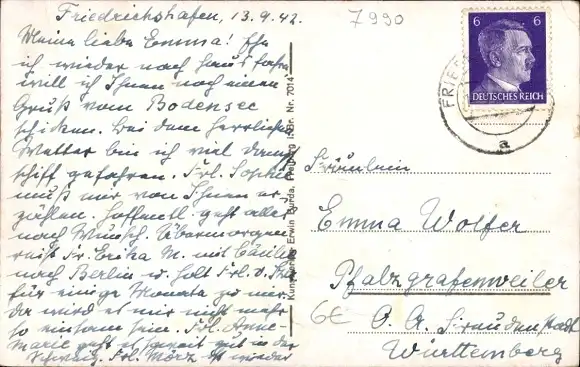 Friedrichshafen, 13.9.42.
7990
Meine liebe Emma! Ehe
ich wieder nach Haus fahre
will ich Ihnen noch einen
Gruß vom Bodensee
schicken. Bei dem herrlichen
Wetter bin ich viel Dampf
schiff gefahren. Frl. Sophie
muß mir von Ihnen er-
zählen. Hoffentl. geht alles
nach Wunsch. Übermorgen
reist Fr. Erika M. mit Cäcilie
nach Berlin u. holt Frl. v.
für einige Monate zu mir.
da wird es mir nicht mehr
so einsam sein. Frl. Anne-
Marie geht es gut in der
Schweiz. Frl. März ist wieder
Erwin Burda, Freiburg i. Br. Nr. 7014
6 6
DEUTSCHES REICH
FRIED
a
Fräulein
Emma Wolfer
Pfalzgrafenweiler
6€
O. A. Freudenstadt
Württemberg